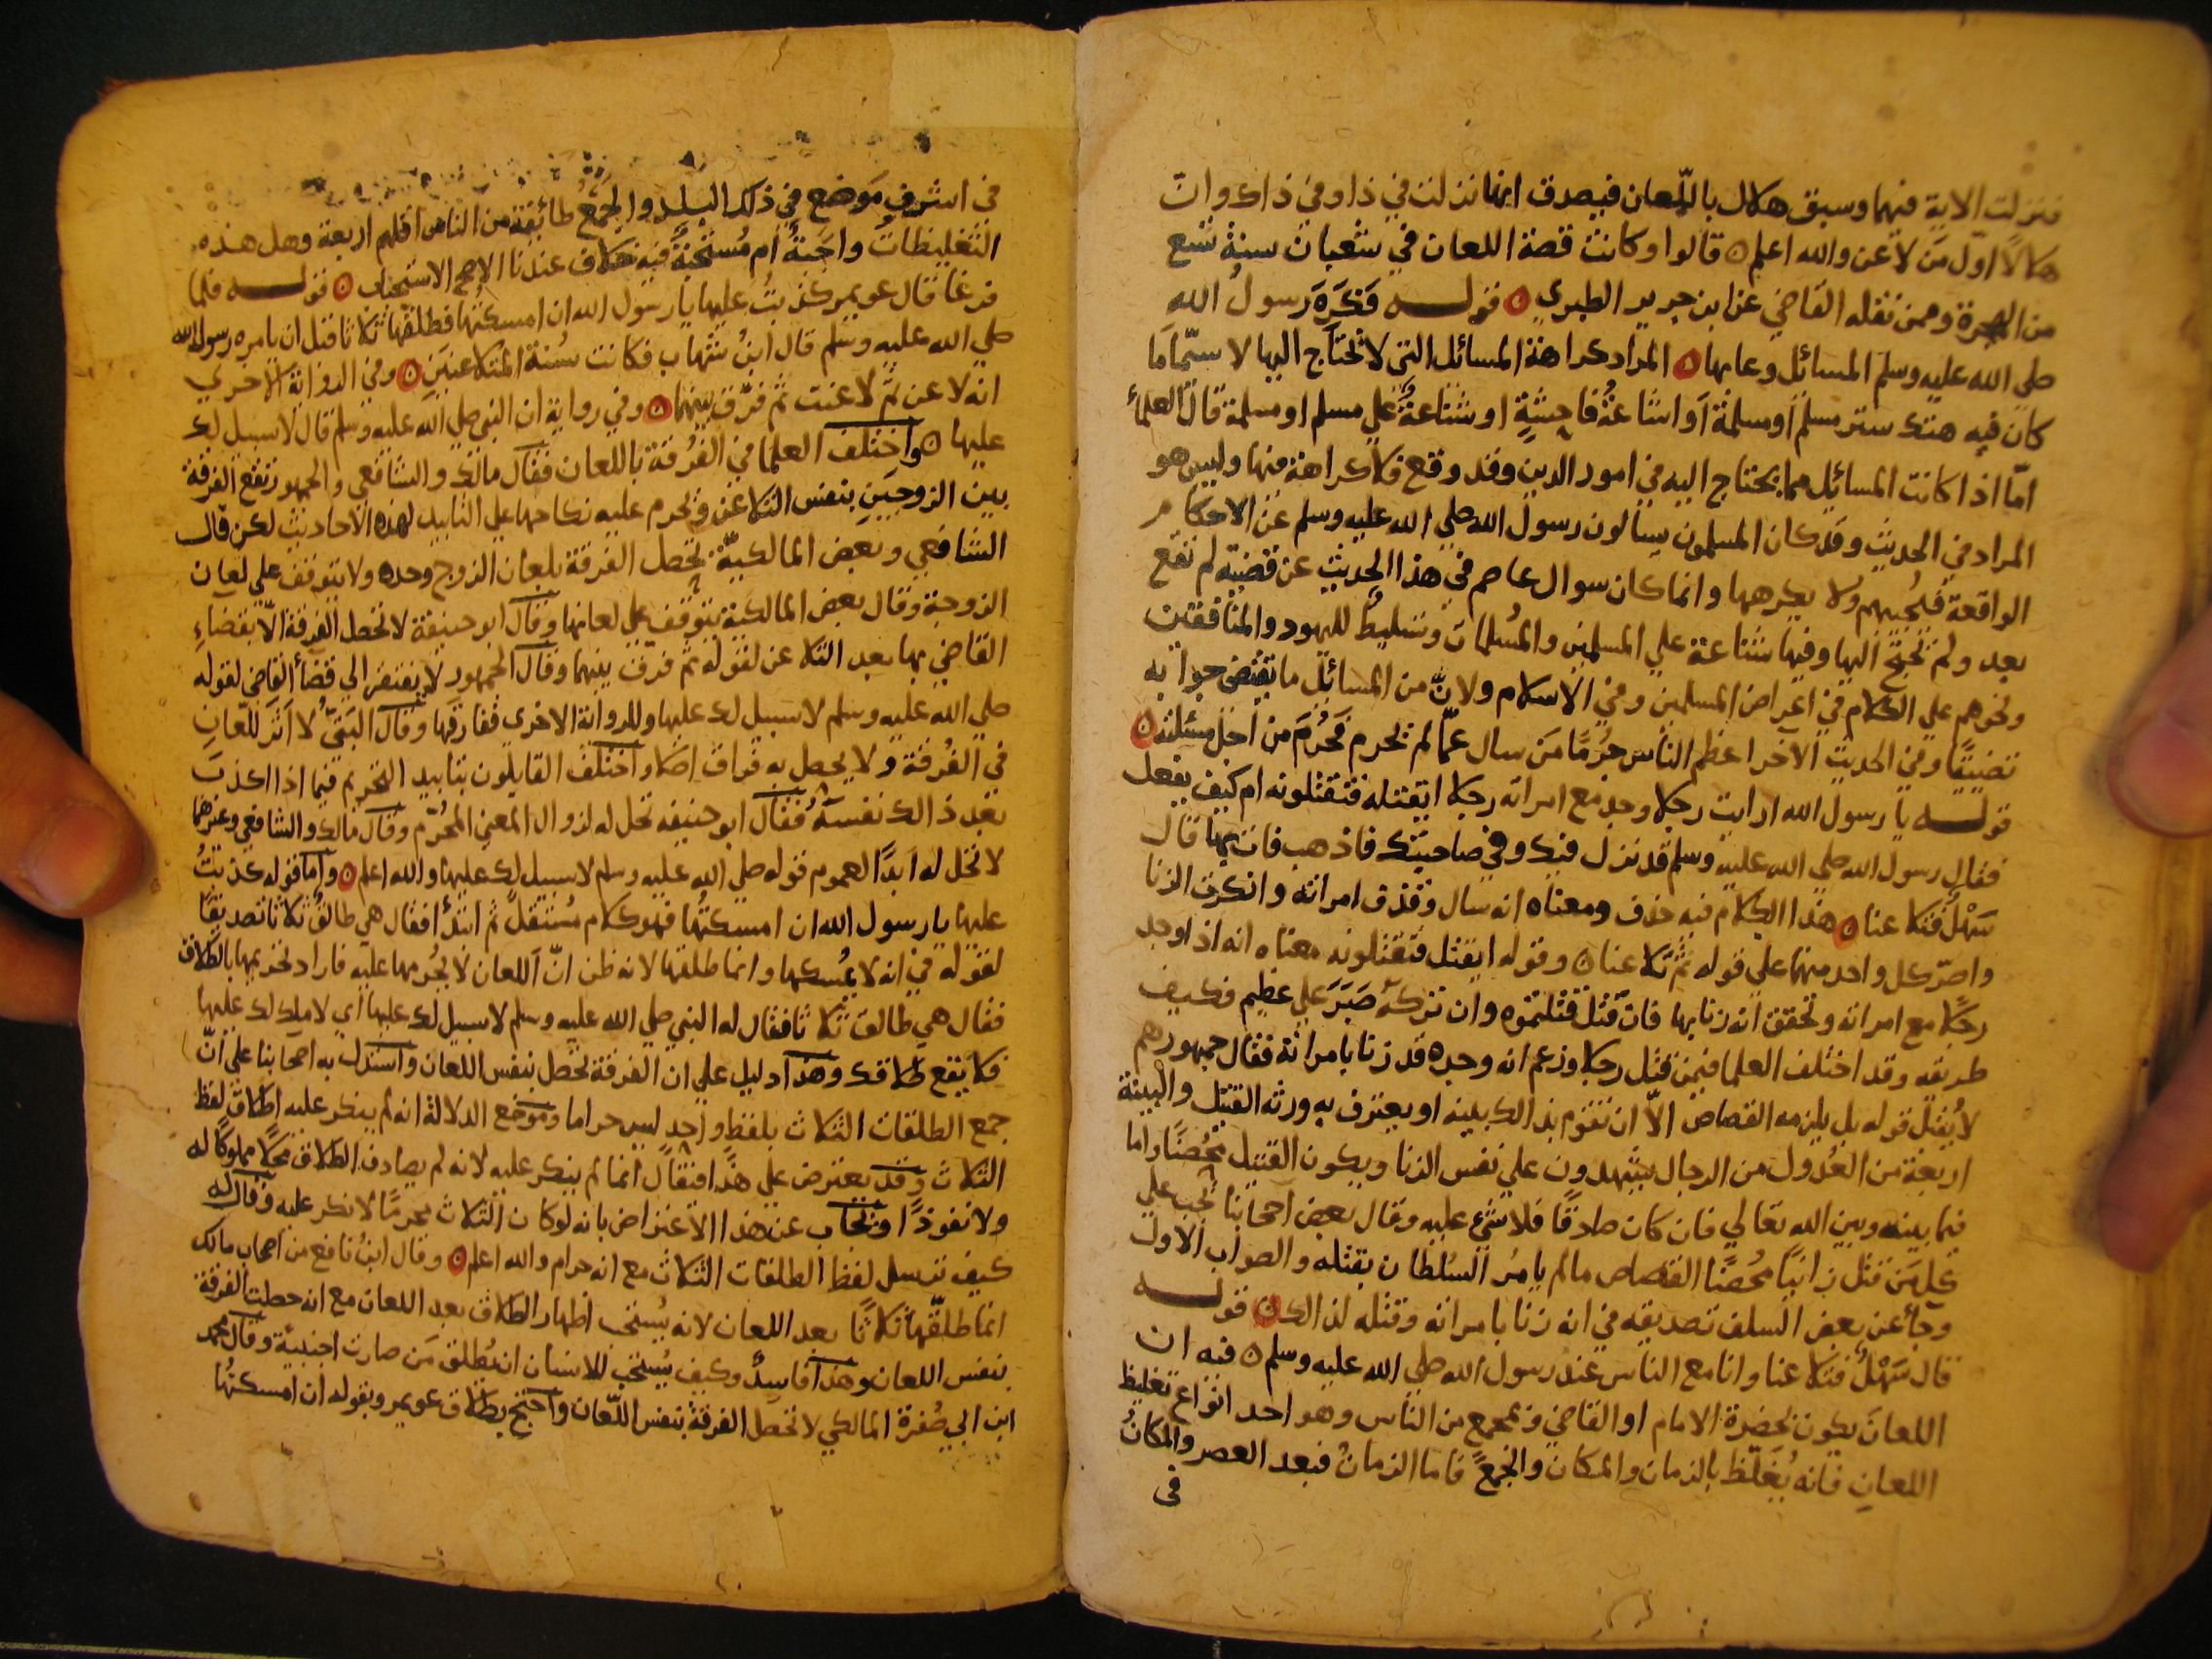 فنزلت الاية فيهما وسبق هلال باللّعان فيصدق انها نزلت في ذا وفي ذاك وان
هلالاً اوّل مَن لاعن والله اعلم ه قالوا وكانت قصة اللعان في شعبان سنة تسع
من الهجرة وممن نقله القاضي عن ابن جرير الطبري ه قولـــه فكَرِهَ رسولُ الله
صلي الله عليه وسلم المسائل وعابها ه المراد كراهة المسائل التي لا تحتاج اليها لا سيّما ما
كان فيه هتك ستر مسلم او مسلمة او اشاعةُ فاحِشةٍ او شناعةٌ علي مسلم او مسلمة قال العلمأ
امّا اذا كانت المسائل مما يحتاج اليه في امور الدين وقد وقع فلا كراهة فيها وليس هو
المراد في الحديث وقد كان المسلمون يسالون رسول الله صلي الله عليه وسلم عن الاحكام
الواقعة فيُجيبهم ولا يكرهها وانما كان سوال عاصم في هذا الحديث عن قضية لم تقع
بعد ولم يُحتج اليها وفيها شناعة علي المسلمين والمُسلمات وتسليط لليهود والمنافقين
ونحوهم علي الكلام في اعراض المسلمين وفي الاسلام ولانّ من المسائل ما يقتضي جوابه
تضييقًا وفي الحديث الاخر اعظم الناس جُرمًا مَن سال عمّا لم يحرم فحُرِّمَ من اجل مسئلته ه
قولـــه يا رسول الله ارايت رجلا وجد مع امراته رجلا ايقتله فتقتلونه ام كيف يفعل
فقال رسول الله صلي الله عليه وسلم قد نزل فيك وفي صاحبتك فاذهب فات بها قال
سَهْلٌ فتلاعنا ه هذا الكلام فيه حذف ومعناه انه سال وقذف امراته وانكرت الزنا
واصرّ كل واحد منهما علي قوله ثم تلاعنا ه وقوله ايقتل فتقتلونه معناه انه اذا وجد
رجلاً مع امراته وتحقق انه زنا بها فان قتل قتلتموه وان تركه صَبَرَ علي عظيم فكيف
طريقه وقد اختلف العلما فيمن قتل رجلا وزعم انه وجده قد زنا بامراته فقال جمهورهم
لا يُقبل قوله بل يلزمه القصاص الّا ان تقوم بذالك بينه او يعترف به ورثه القتيل والبينة
اربعة من العُدول من الرجال يشهدون علي نفس الزنا ويكون القتيل مُحْصَنًا واما
فيما بينه وبين الله تعالي فان كان صادقًا فلا شيء عليه وقال بعض اصحابنا تجب علي
كل مَن قتل زانيًا محُصَنًا القصاص مالم يامُر السُلطان بقتله والصواب الاول
وجأ عن بعض السلف تصديقه في انه زنا بامراته وقتله لذالك ه قولـــه
قال سَهْلٌ فتلاعنا وانا مع الناس عند رسول الله صلي الله عليه وسلم ه فيه ان
اللعانَ يكون بحَضرة الامام او القاضي وبمجمع من الناس وهو احد انواع تغليظ
اللعانِ فانه يُغَلّظ بالزمان والمكان والجمع فاما الزمانُ فبعد العصر والمكانُ
في
في اشرف مَوضع في ذلك البلد والجمعُ طائفة من الناس اقلهم اربعة وهل هذه
التغليظاتُ واجبةٌ ام مُستحبةٌ فيه خلاف عندنا الاصح الاستحباب ه قولـــه فلما
فرغا قال عويمر كذبتُ عليها يا رسول الله ان امسكتها فطلقها ثلاثا قبل ان يامره رسول الله
صلي الله عليه وسلم قال ابنُ شهاب فكانت سُنة المتلاعنين ه وفي الرواية الاخري
انه لاعن ثم لاعنت ثم فرّق بينهما ه وفي رواية ان النبي صلي الله عليه وسلم قال لا سبيل لك
عليها ه واختلف العلما في الفُرقة باللعان فقال مالك والشافعي والجمهور تقع الفرقة
بين الزوجين بنفس التلاعن ويحرم عليه نكاحها علي التابيد لهذه الاحاديث لكن قال
الشافعي وبعض المالكيّة تحصل الفرقة بلعان الزوج وحده ولا يتوقف علي لعان
الزوجة وقال بعض المالكية يتوقف علي لعانها وقال ابو حنيفة لا تحصل الفرقة الّا بقضاءِ
القاضي بها بعد التلاعن لقوله ثم فرق بينهما وقال الجمهور لا يفتقر الي قضأ القاضي لقوله
صلي الله عليه وسلم لا سبيل لك عليها وللرواية الاخري ففارقها وقال البَتيُّ لا اثَر للّعانِ
في الفُرقة ولا يحصل به فراق اصلا واختلف القايلون بتابيد التحريم فيما اذا اكذبَ
بعد ذالك نفسَهُ فقال ابو حنيفه تحل له لزوال المعني المحُرّم وقال مالك والشافعي وغيرهما
لا تحل له ابدًا لعموم قوله صلي الله عليه وسلم لا سبيل لك عليها والله اعلم ه واما قوله كذبتُ
عليها يا رسول الله ان امسكتُها فهو كلام مُستقلٌ ثم ابتدأ فقال هي طالقٌ ثلاثا تصديقًا
لقوله في انه لا يمُسكها وانما طلقها لانه ظن انّ اللعان لا يُحرمها عليه فاراد تحريمها بالطلاق
فقال هي طالق ثلاثا فقال له النبي صلي الله عليه وسلم لا سبيل لك عليها اي لا ملك لك عليها
فلا يقع طلاقك وهذا دليل علي ان الفرقة تحصل بنفس اللعان واستدل به اصحابنا علي انّ
جمع الطلقات الثلاث بلفظٍ واحدٍ ليس حراما وموضع الدلالة انه لم ينكر عليه اطلاق لفظ
الثلاث وقد يعترض علي هذا فيقال انما لم ينكر عليه لانه لم يصادف الطلاق محلًا مملوكًا له
ولا نفوذًا ويجاب عن هذا الاعتراض بانه لو كان الثلاث محرمًا لانكر عليه وقال له
كيف ترسل لفظ الطلقات الثلاث مع انه حرام والله اعلم ه وقال ابنُ نافع من اصحاب مالك
انما طلّقها ثلاثًا بعد اللعان لانه يُستحب اظهار الطلاق بعد اللعان مع انه حصلت الفرقة
بنفس اللعان وهذا فاسدٌ وكيف يُستحب للانسان ان يُطلق مَن صارت اجنبيةً وقال محمد
ابن ابي صُفرة المالكي لا تحصل الفرقة بنفس اللّعان واحتج بطلاق عويمر وبقوله ان امسكتُها